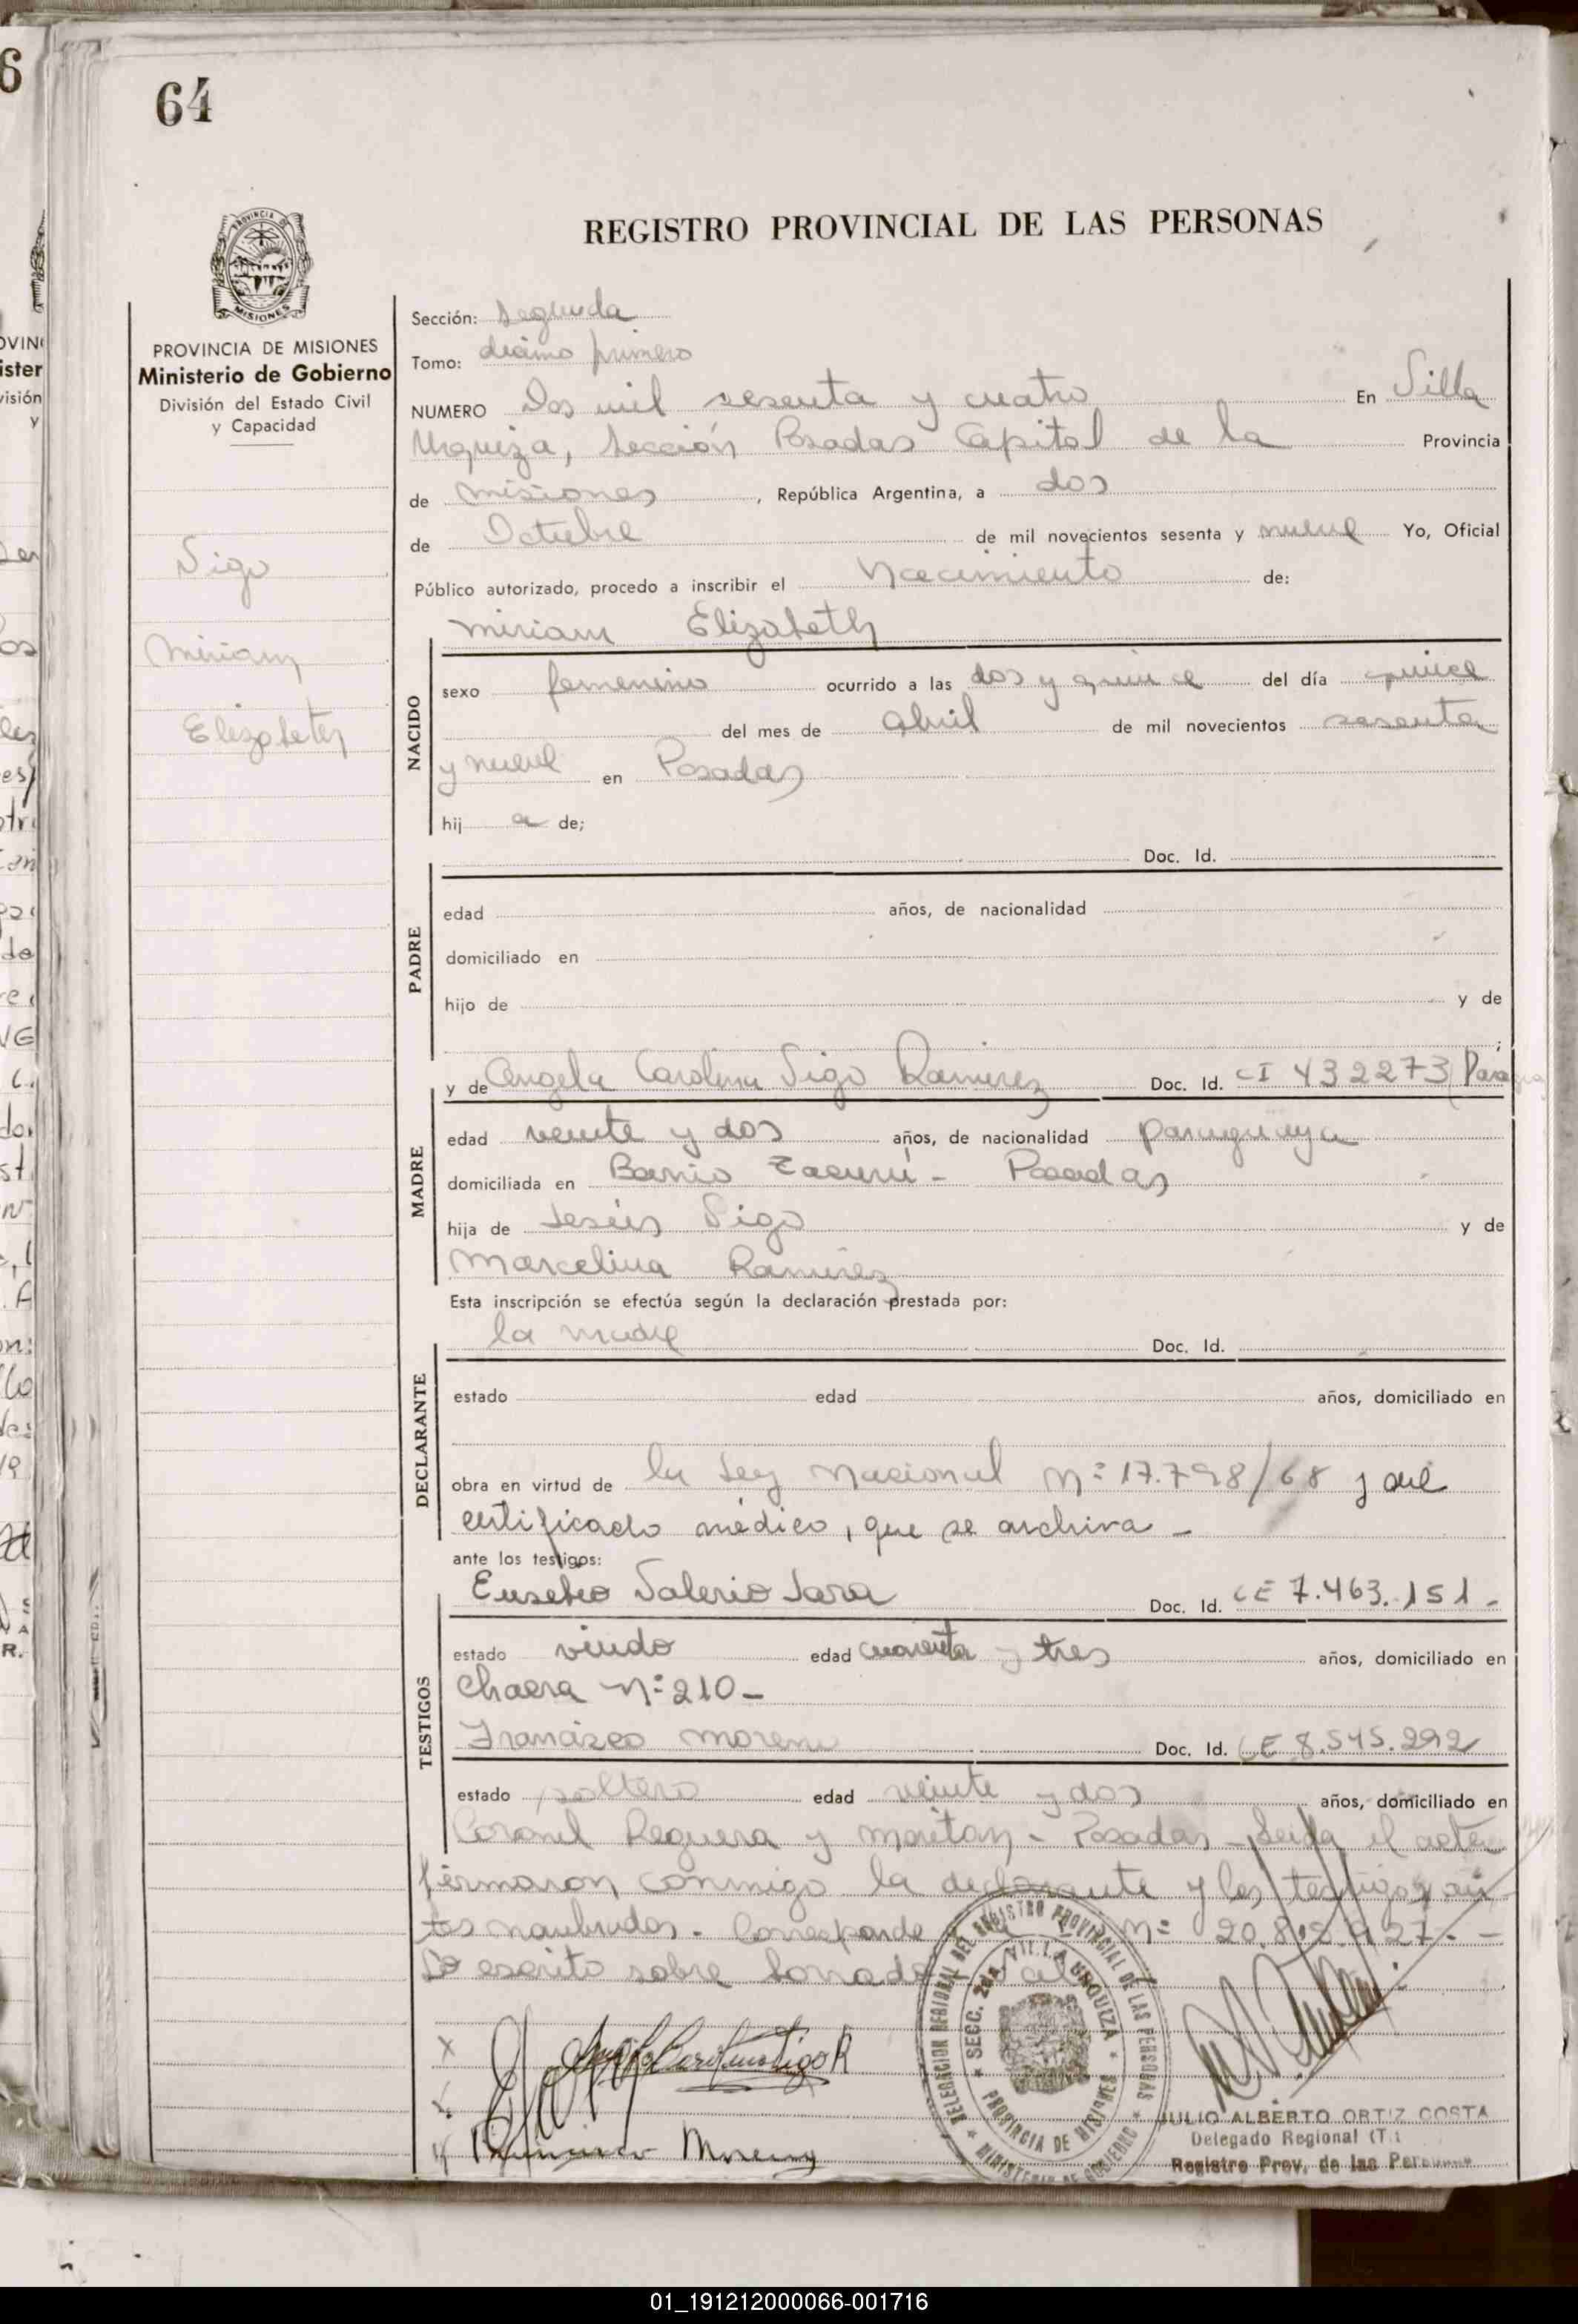 64
REGISTRO PROVINCIAL DE LAS PERSONAS
PROVINCIA DE MISIONES
Ministerio de Gobierno
División del Estado Civil
y Capacidad
Sigo
Miriam
Elizabeth
Sección: Segunda
Tomo: décimo primero
NUMERO Dos mil sesenta y cuatro En Villa
Urquiza, Sección Posadas Capital de la Provincia
de Misiones, República Argentina, a dos
de Octubre de mil novecientos sesenta y nueve Yo, Oficial
Público autorizado, procedo a inscribir el Nacimiento de:
Miriam Elizabeth
NACIDO
sexo femenino ocurrido a las dos y quince del día quince
del mes de abril de mil novecientos sesenta
y nueve en Posadas
hij a de;
Doc. Id.
PADRE
edad años, de nacionalidad
domiciliado en
hijo de y de
;
MADRE
y de Angela Carolina Sigo Ramirez Doc. Id. CI 432273
edad veinte y dos años, de nacionalidad paraguaya
domiciliada en Barrio - Posadas
hija de Jesús Sigo y de
Marcelina Ramirez
Esta inscripción se efectúa según la declaración prestada por:
DECLARANTE
la madre Doc. Id.
estado edad años, domiciliado en
obra en virtud de la Ley Nacional Nº 17.798/68 y del
certificado médico, que se archiva -
ante los testigos:
TESTIGOS
Eusebio Valerio Jara Doc. Id. CE 7.463.151-
estado viudo edad cuarenta y tres años, domiciliado en
Chacra Nº 210-
Francisco Moreno Doc. Id. CE 8.545.292
estado soltero edad veinte y dos años, domiciliado en
Coronel Reguera y - Posadas - Leida el acta
firmaron conmigo la declarante y los testigos an
tes nombrados. Corresponde Nº 20.802.927.-
Lo escrito sobre borrado: Vale
DELEGACION REGIONAL DEL REGISTRO PROVINCIAL DE LAS PERSONAS
MINISTERIO DE GOBIERNO
SECC. 2da. VILLA URQUIZA
PROVINCIA DE MISIONES
Francisco Moreno
JULIO ALBERTO ORTIZ COSTA
Delegado Regional (T.)
Registro Prov. de las Personas
01_191212000066-001716